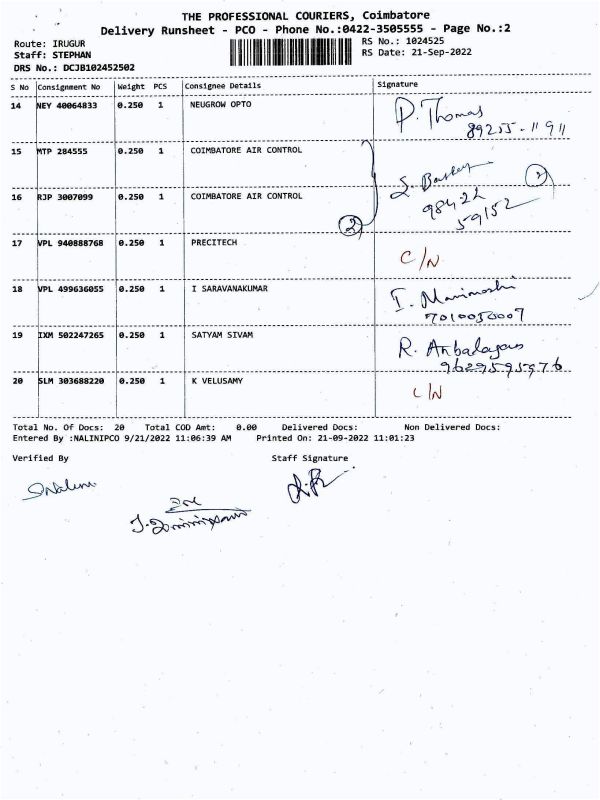 THE PROFESSIONAL COURIERS, Coimbatore
Delivery Runsheet - PCO - Phone No.:0422-3505555 - Page No.:2
Route: IRUGUR
RS No.: 1024525
Staff: STEPHAN
RS Date: 21-Sep-2022
DRS No.: DCJB102452502
S No Consignment No Weight PCS Consignee Details Signature
14 NEY 40064833 0.250 1 NEUGROW OPTO P. Thomas
89255-11911
15 MTP 284555 0.250 1 COIMBATORE AIR CONTROL
16 RJP 3007099 0.250 1 COIMBATORE AIR CONTROL 98422
59152
2
2
17 VPL 940888768 0.250 1 PRECITECH C/N
18 VPL 499636055 0.250 1 I SARAVANAKUMAR I.
19 IXM 502247265 0.250 1 SATYAM SIVAM R.
9629595976
20 SLM 303688220 0.250 1 K VELUSAMY C/N
Total No. Of Docs: 20 Total COD Amt: 0.00 Delivered Docs: Non Delivered Docs:
Entered By :NALINIPCO 9/21/2022 11:06:39 AM Printed On: 21-09-2022 11:01:23
Verified By Staff Signature